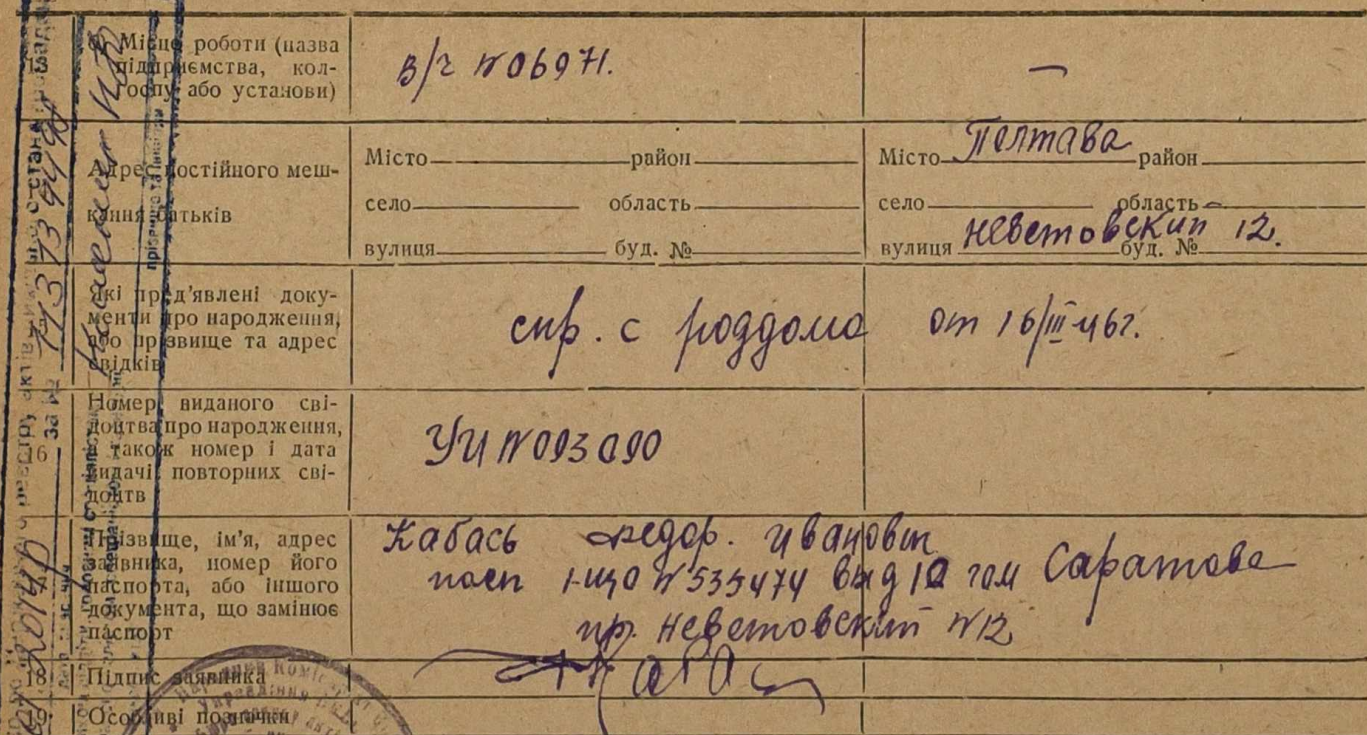 Місце роботи (назва
підприємства, кол-
госпу або установи)
в/ч №06971.
—
Адрес постійного меш-
кання батьків
Місто район
село область
вулиця буд. №
Місто Полтава район
село область
вулиця неветовский 12. буд. №
Які пред'явлені доку-
менти про народження,
або прізвище та адрес
свідків
спр. с роддома от 16/III-46г.
16
Номер виданого сві-
доцтва про народження,
а також номер і дата
видачі повторних сві-
доцтв
УИ №093090
Прізвище, ім'я, адрес
заявника, номер його
паспорта, або іншого
документа, що замінює
паспорт
Кабась Федор. Иванович
№535474 выд 10 гом Саратова
пр. неветовский №12
18
Підпис заявника
19
Особливі позначки
за №